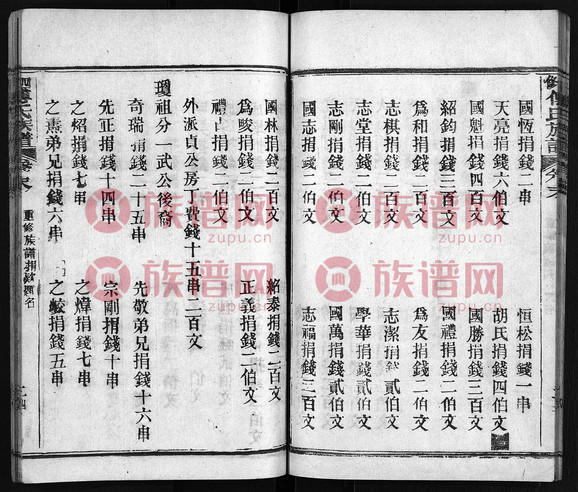 國恆捐錢二串
恒松捐錢一串
天亮捐錢六伯文
胡氏捐錢四伯文
國魁捐錢四百文
國勝捐錢三百文
紹鈞捐錢二百文
國禮捐錢二百文
爲和捐錢二百文
爲友捐錢二百文
志棋捐錢二百文
志潔捐錢貳伯文
志堂捐錢二百文
學華捐錢貳伯文
志剛捐錢二百文
國萬捐錢貳伯文
國志捐錢二伯文
志福捐錢三百文
國林捐錢二百文
紹泰捐錢二百文
爲駿捐錢二百文
正義捐錢二伯文
禮捐錢二伯文
外派貞公房一費錢十五串二百文
瓊祖分一武公後裔
奇瑞捐錢二十五串
先敬弟兄捐錢十六串
先正捐錢十四串
宗剛捐錢十串
之炤捐錢七串
之煒捐錢七串
之燾弟兄捐錢六串
之較捐錢五串
氏族譜
重修族譜捐欵姓名
族谱网
zupu.cn
族谱网
zupu.cn
族谱网
zupu.cn
族谱网
zupu.cn